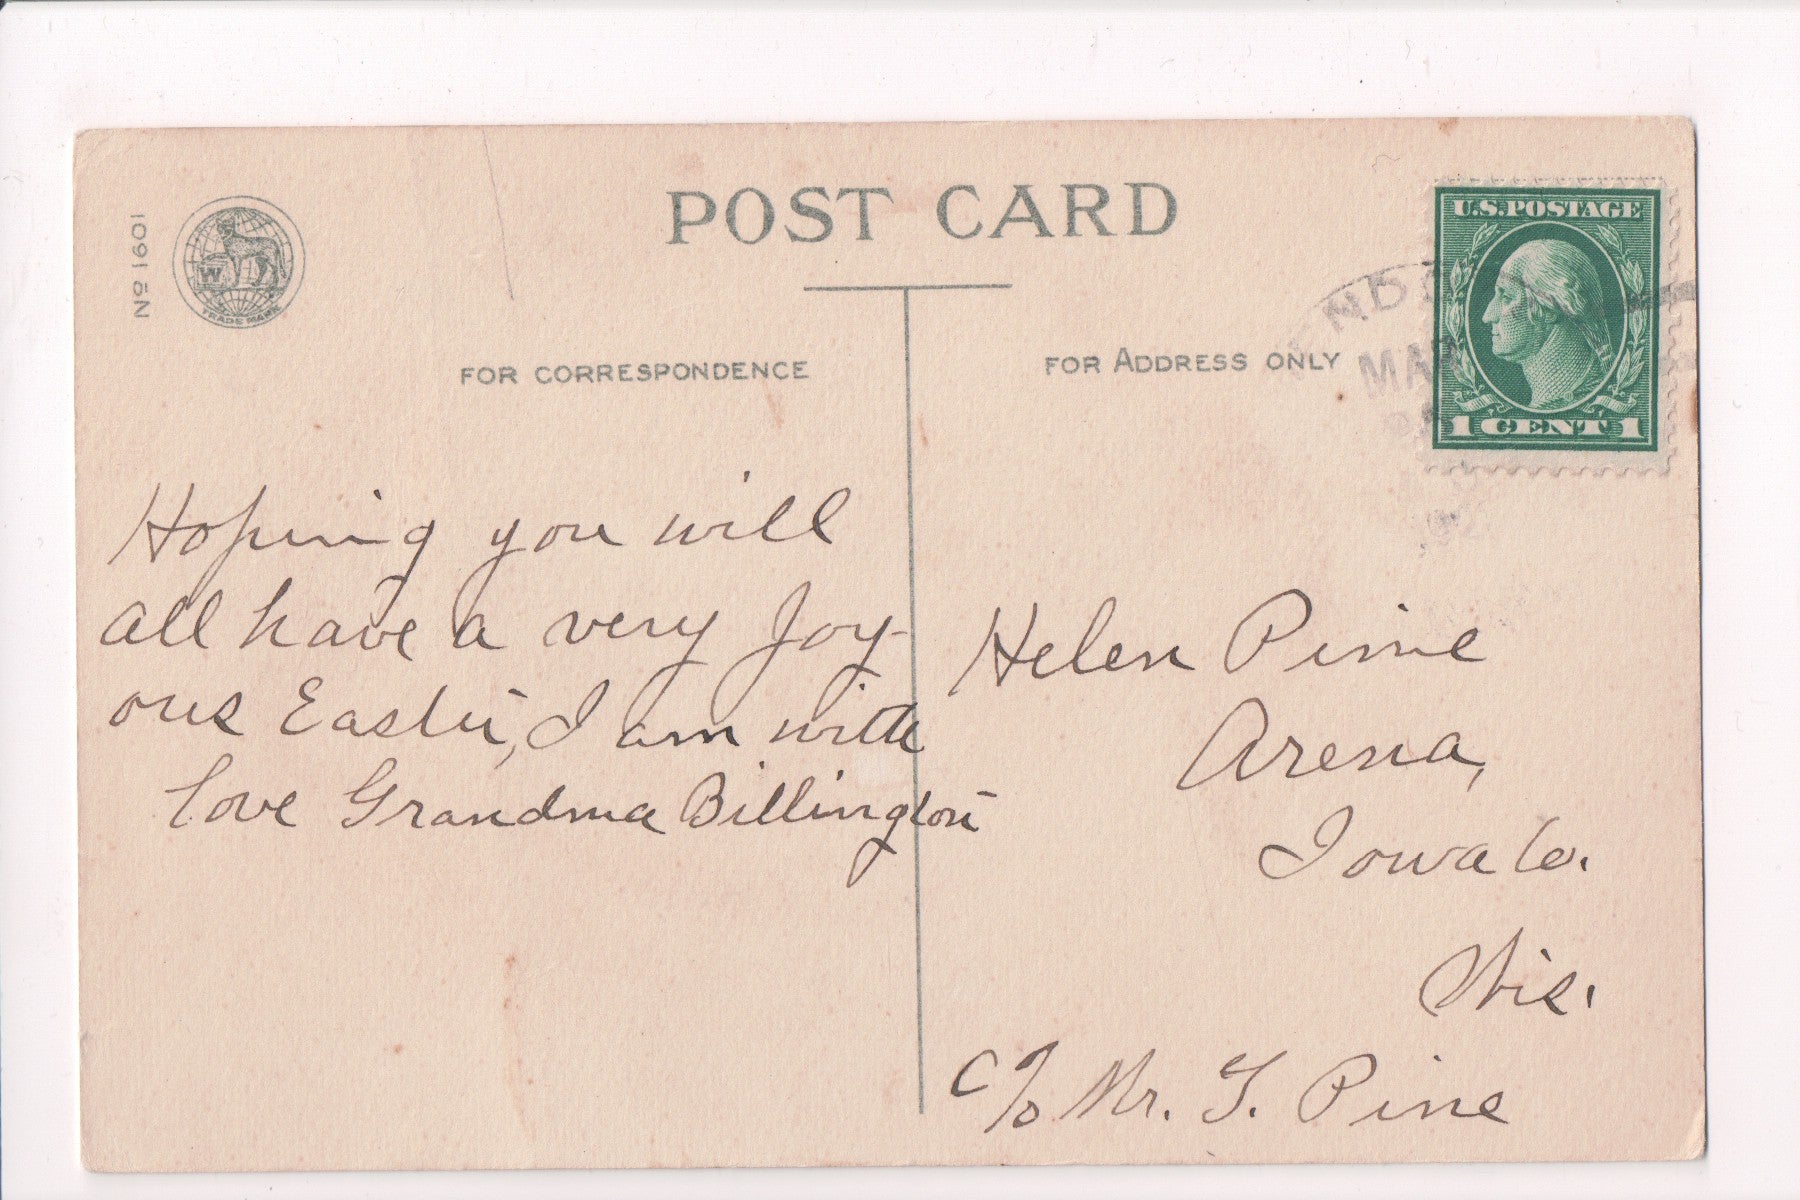 POST CARD
No 1601
W.
TRADE MARK
U.S. POSTAGE
1 CENT 1
MAR
FOR CORRESPONDENCE
FOR ADDRESS ONLY
Hoping you will
all have a very Joy-
ous Easter, I am with
love Grandma Billington
Helen Pine
Arena,
Iowa Co.
Wis.
c/o Mr. T. Pine